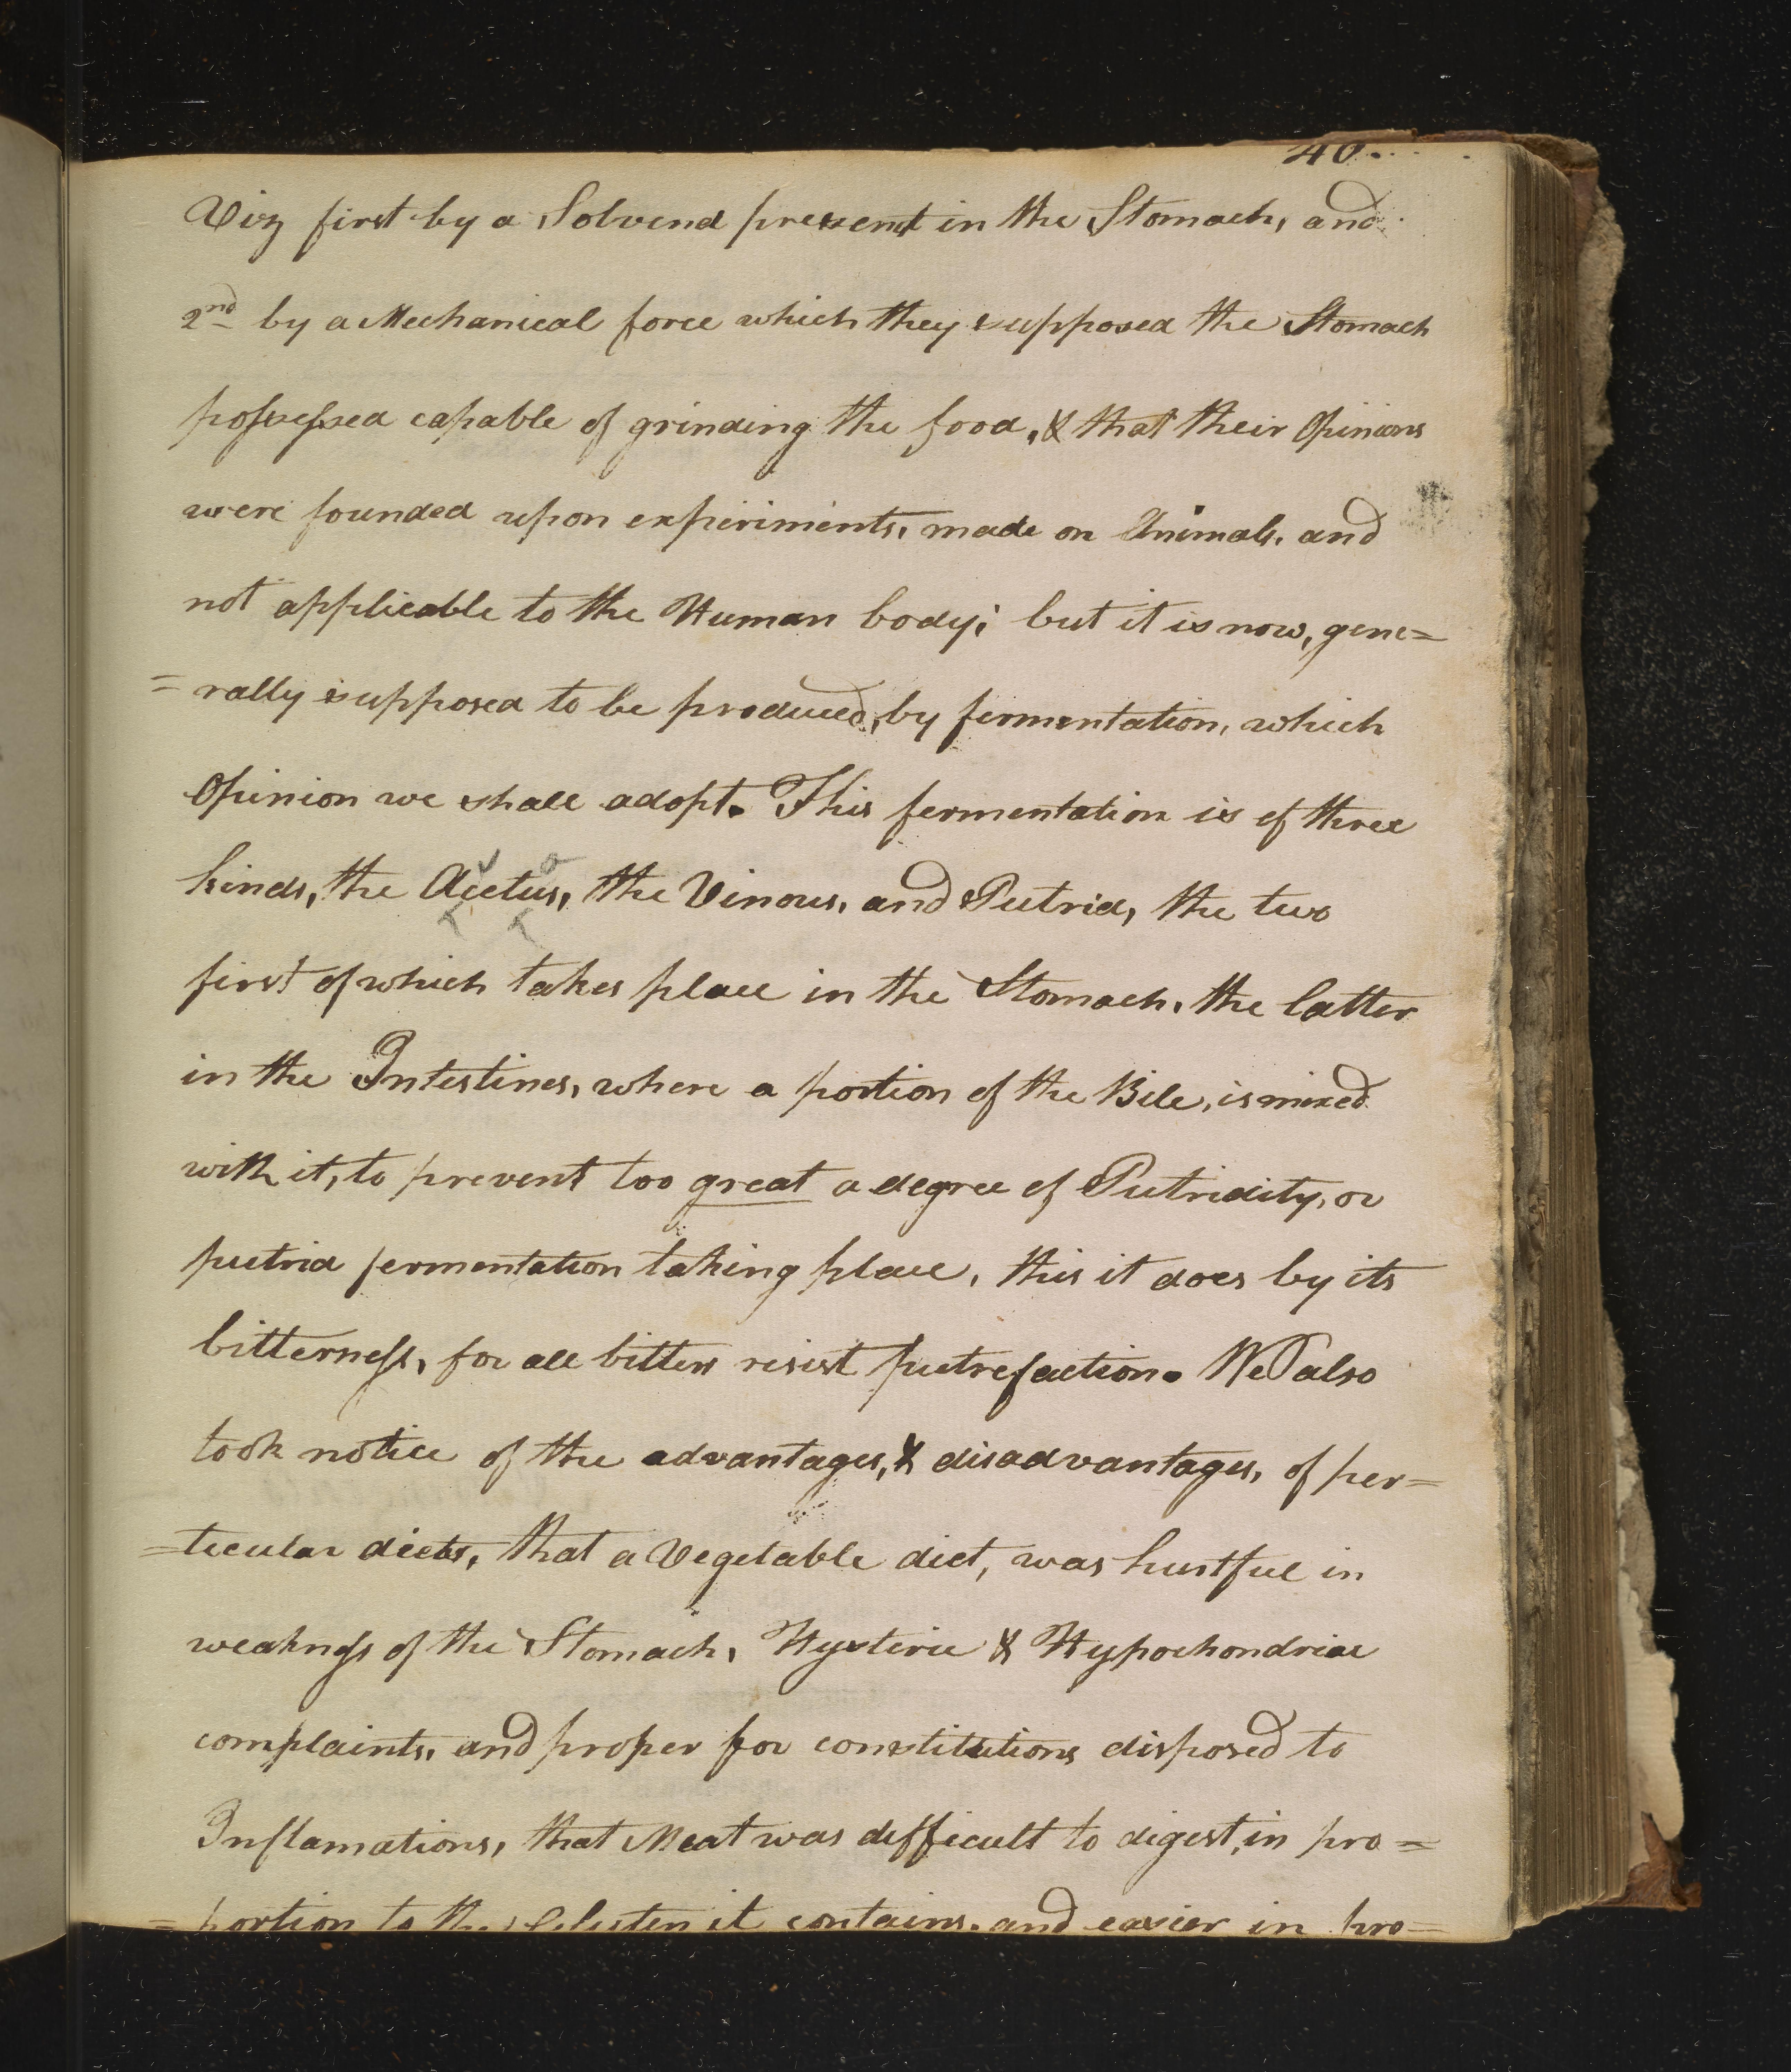 40.
Viz first by a Solvend present in the Stomach, and
2nd by a Mechanical force which they supposed the Stomach
possessed capable of grinding the food, & that their Opinions
were founded upon experiments, made on Animals, and
not applicable to the Human body; but it is now, gene=
=rally supposed to be produced, by fermentation, which
Opinion we shall adopt. This fermentation is of three
kinds, the Acetus, the Vinous, and Putrid, the two
first of which takes place in the Stomach, the latter
in the Intestines, where a portion of the Bile, is mixed
with it, to prevent too great a degree of Putridity, or
putrid fermentation taking place, this it does by its
bitterness, for all bitters resist putrefaction. We also
took notice of the advantages, & disadvantages, of per=
=ticular diets, that a Vegetable diet, was hurtful in
weakness of the Stomach, Hysteric & Hypochondriac
complaints, and proper for constitutions disposed to
Inflamations, that Meat was difficult to digest, in pro=
=portion to the Gluten it contains, and easier in pro=